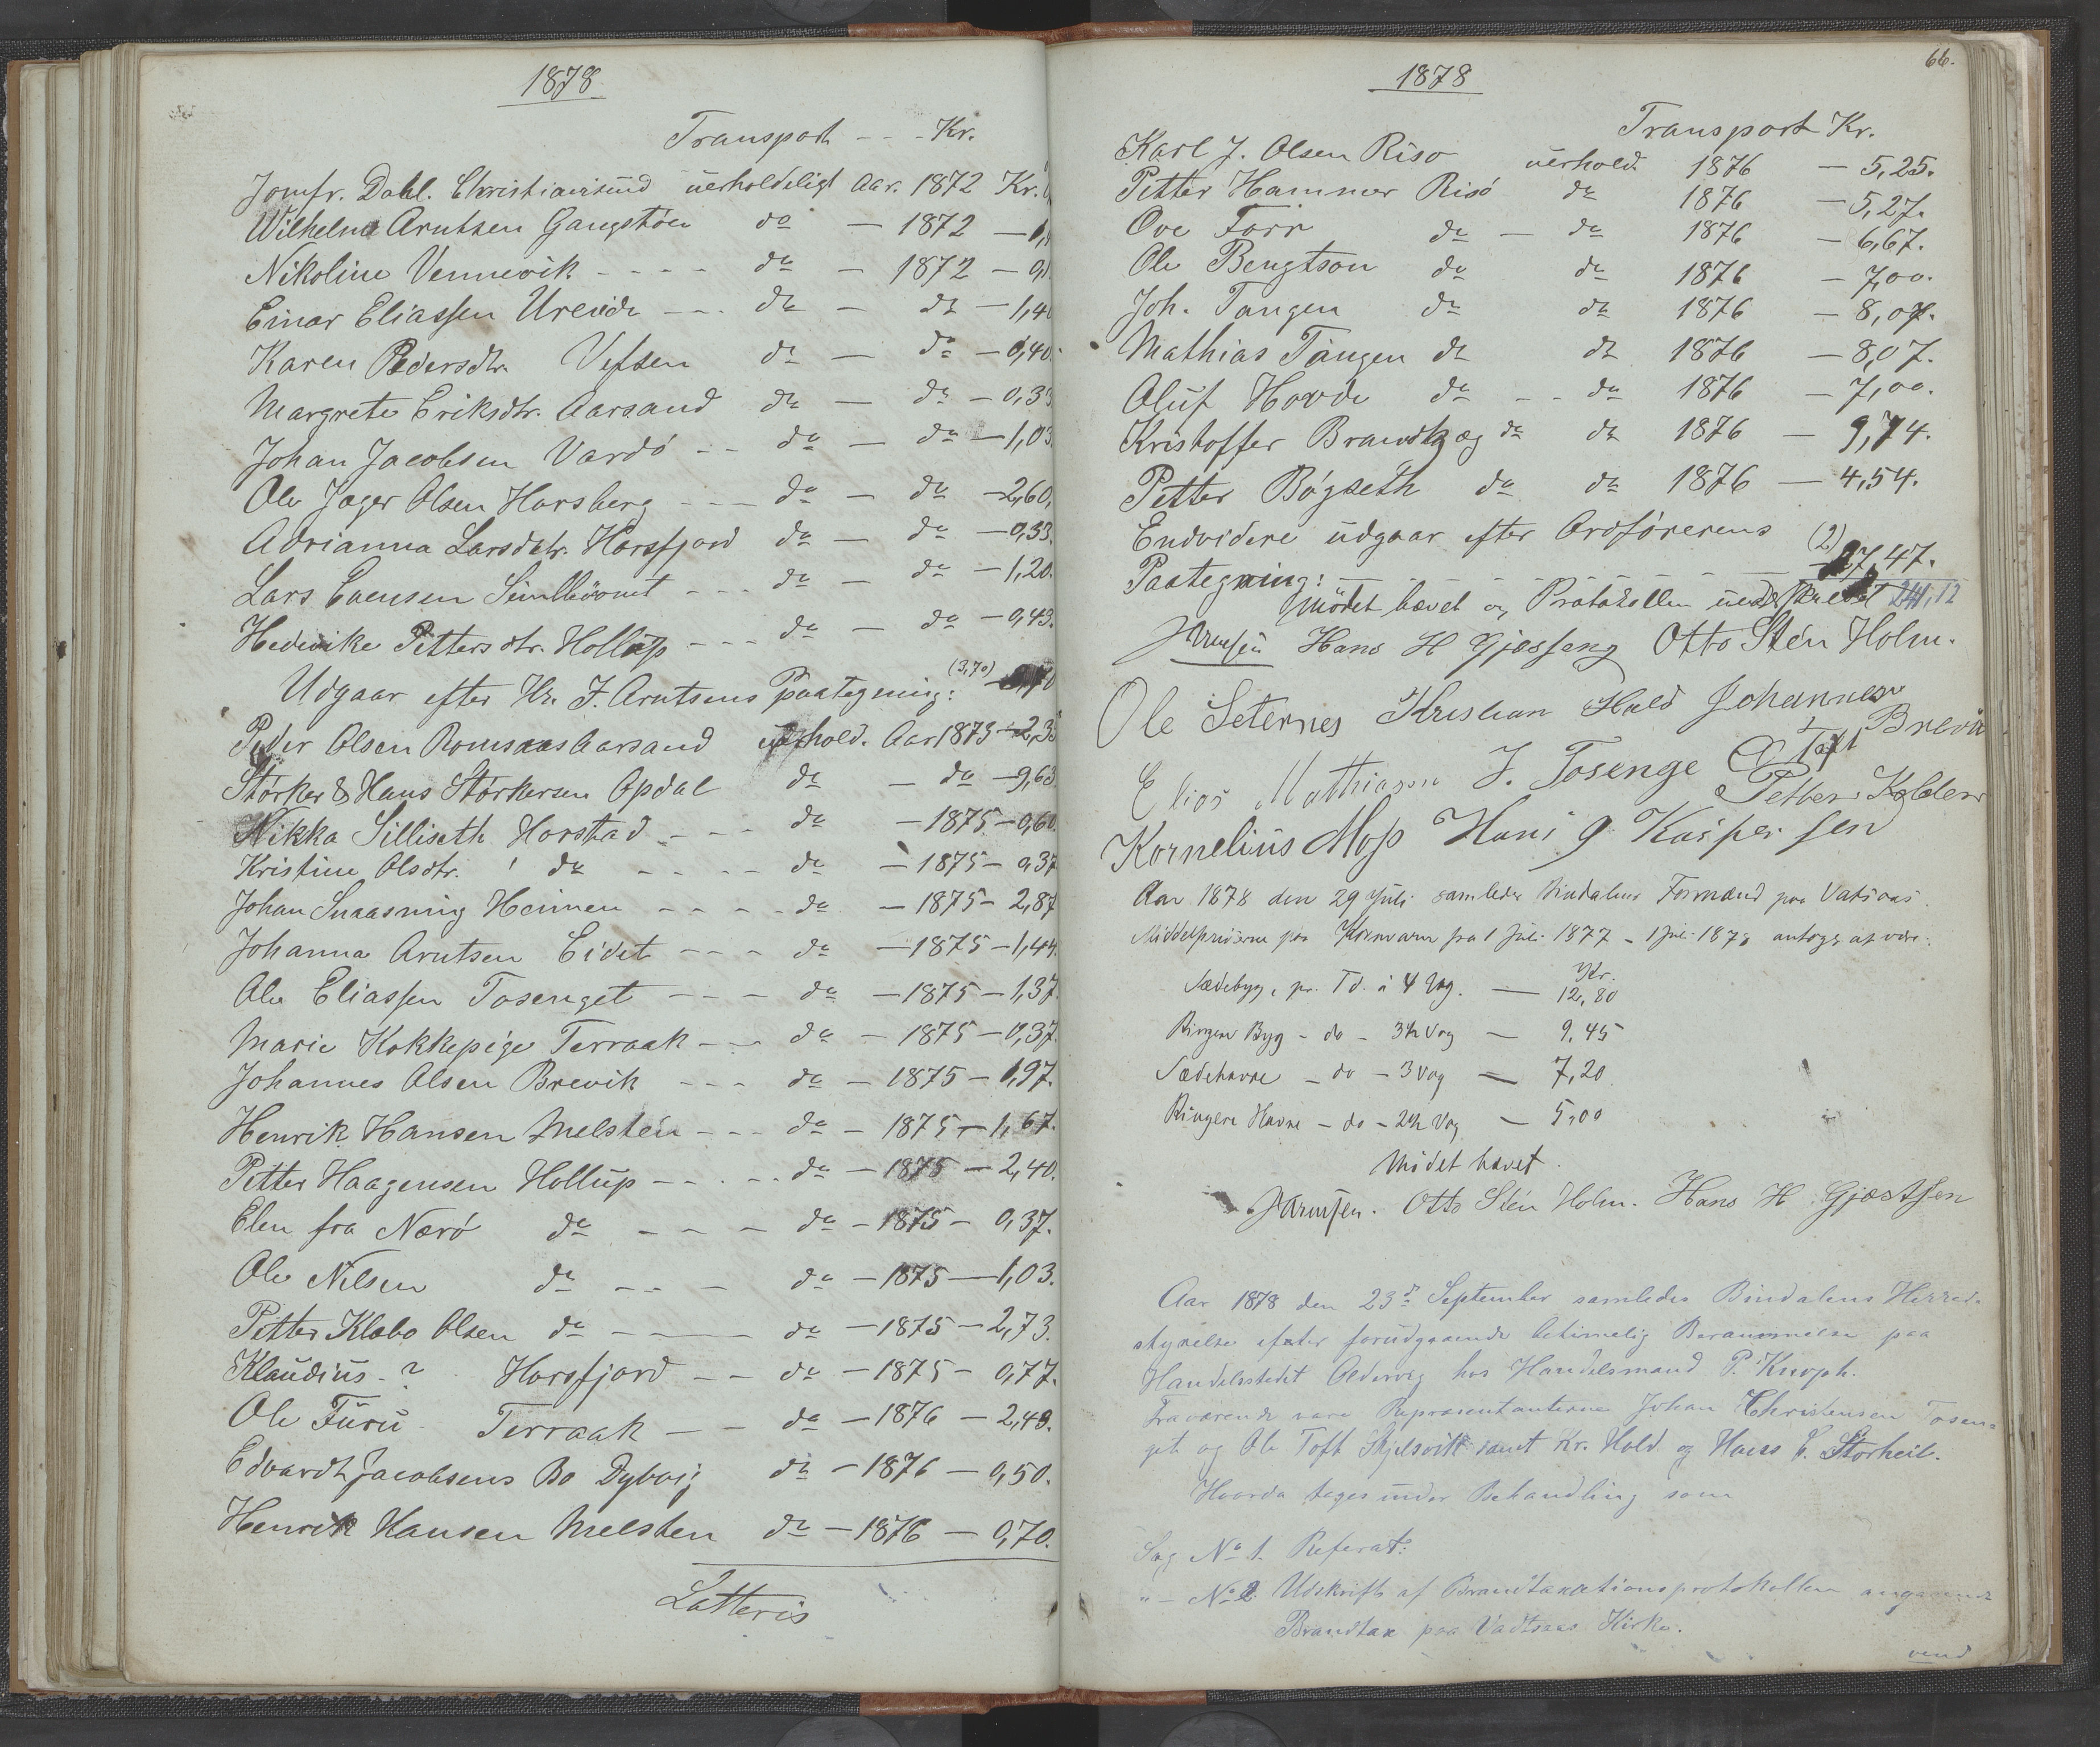 1878
Transport - - - Kr.
Jomfr. Dahl. Christiansund uerholdeligt Aar. 1872 Kr.
Wilhelm Arntsen Gangstøen do — 1872 —
Nikoline Vennevik - - - - do — 1872 —
Einar Eliassen Ureide - - - do — do — 1,40
Karen Pedersdtr. Vefsen do — do — 0,40.
Margrete Eriksdtr. Aarsand do — do — 0,33
Johan Jacobsen Vardö - - do — do — 1,03.
Ole Jager Olsen Horsberg - - - do — do — 2,60.
Adrianna Larsdtr. Horsfjord do — do — 0,33.
Lars Evensen - - - do — do — 1,20.
Hedevike Pettersdtr. Hollup - - - do — do — 0,43.
Udgaar efter Hr. J. Arntsens Paategning: (3,70)
Peder Olsen Aarsand uerhold. Aar 1873 — 2,35
Störker & Hans Störkersen Opdal do — do — 9,63.
Nikka Silliseth Horstad - - - do — 1875 — 0,60.
Kristine Olsdtr. do - - - - do — 1875 — 0,37
Johan Snaasning Heimen - - - - do — 1875 — 2,87
Johanna Arntsen Eidet - - - do — 1875 — 1,44.
Ole Eliassen Tosenget - - - do — 1875 — 1,37.
Marie Kokkepige Terraak - - do — 1875 — 0,37.
Johannes Olsen Brevik - - - do — 1875 — 1,97.
Henrik Hansen Melsten - - - do — 1875 — 1,67.
Petter Haagensen Hollup - - - - do — 1875 — 2,40.
Elen fra Nærö do - - - do — 1875 — 0,37.
Ole Nilsen do - - - do — 1875 — 1,03.
Petter Klæbo Olsen do - - - do — 1875 — 2,73.
Klaudius - ? Horsfjord - - do — 1875 — 0,77.
Ole Furu Terraak - - do — 1876 — 2,48.
Edvardt Jacobsens Bo Dybvig do — 1876 — 0,50.
Henrik Hansen Melsten do — 1876 — 0,70.
Latteris
66.
1878
Transport Kr.
Karl J. Olsen Risö uerhold. 1876 — 5,25.
Petter Hammer Risö do 1876 — 5,27.
Ove Forr do — do 1876 — 6,67.
Ole Bengtson do do 1876 — 7,00.
Joh. Tangen do do 1876 — 8,07.
Mathias Tangen do do 1876 — 8,07.
Aluf Hovde do - - do 1876 — 7,00.
Kristoffer do do 1876 — 9,74.
Petter Bögseth do do 1876 — 4,54.
Endvidere udgaar efter Ordførerens (2)
Paategning: - - - - - - 27,47.
Mödet hævet og Protokollen underskrevet
JArntsen Hans H Gjæsseng Otto Stén Holm.
Ole Seternes Kristian Hald Johannes Brevik
Elias Mathiason J. Tosenge O Toft
Petter Kolden
Kornelius Moss Hans J Kaspersen
Aar 1878 den 29 Juli samledes Bindalens Formænd paa Vatsaas.
Middelpriserne paa Kornvarer fra 1 Juli 1877 - 1 Juli 1878 antoges at være:
Kr.
Sædebyg, pr. Td. a 4 Vog. — 12,80
Ringere Byg - do - 3½ Vog — 9,45
Sædehavre - do - 3 Vog — 7,20
Ringere Havre - do - 2½ Vog — 5,00
Mödet hævet.
JArntsen. Otto Stén Holm. Hans H Gjæstsen
Aar 1878 den 23de September samledes Bindalens Herreds-
styrelse efter forudgaaende betimelig Berammelse paa
Handelsstedet hos Handelsmand P. Knoph.
Fraværende vare Repræsentanterne Johan Christensen Tosen-
get og Ole Toft Skjelsvik samt Kr. Hald og Hans C. Storheil.
Hvorda toges under Behandling som
Sag No 1. Referat:
" - No 2 Udskrift af Brandtaxationsprotokollen angaaende
Brandtax paa Vadtsaas Kirke.
vend